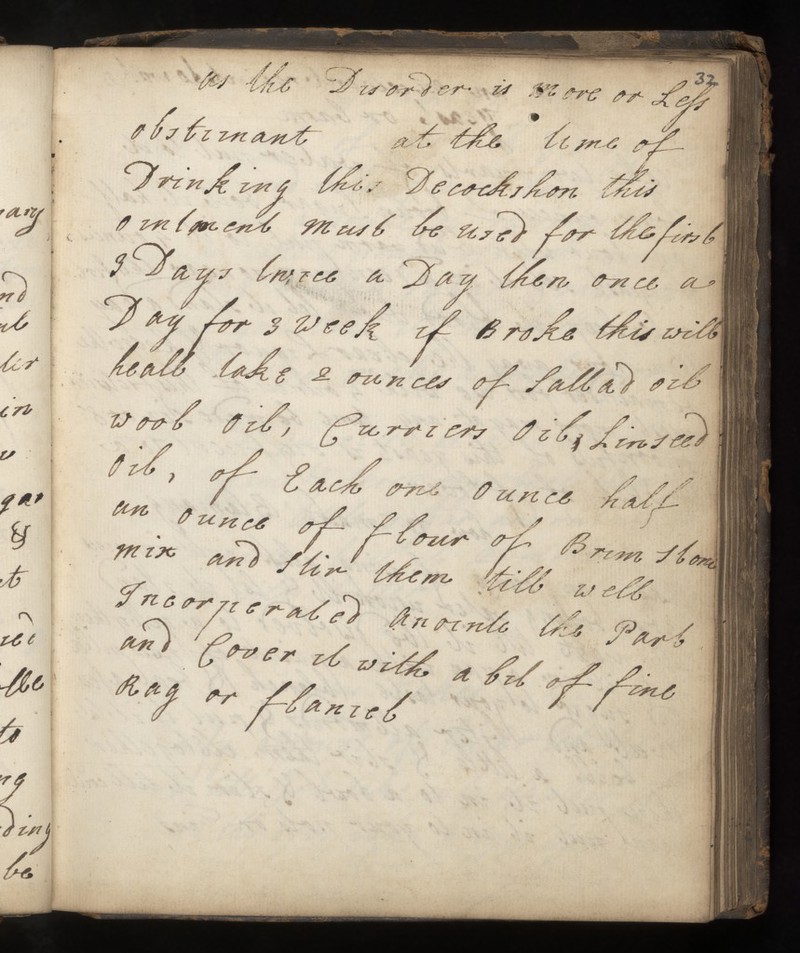 32
as the Disorder is more or Less
obstinant at the time of
Drinking this Decockshon this
ointment must be used for the first
9 Days twice a Day then once a
Day for 3 week if Broke this will
heall take 2 ounces of Sallad oil
wool oil, Curriers Oil, Linseed
Oil, of Each one Ounce half
an ounce of flour of Brim stone
mix and Stir them till well
Incorperated anointe the Part
and Cover it with a bit of fine
Rag or flaniel
ary
nd
ler
in
gar
&
et
to
ng
ding
be